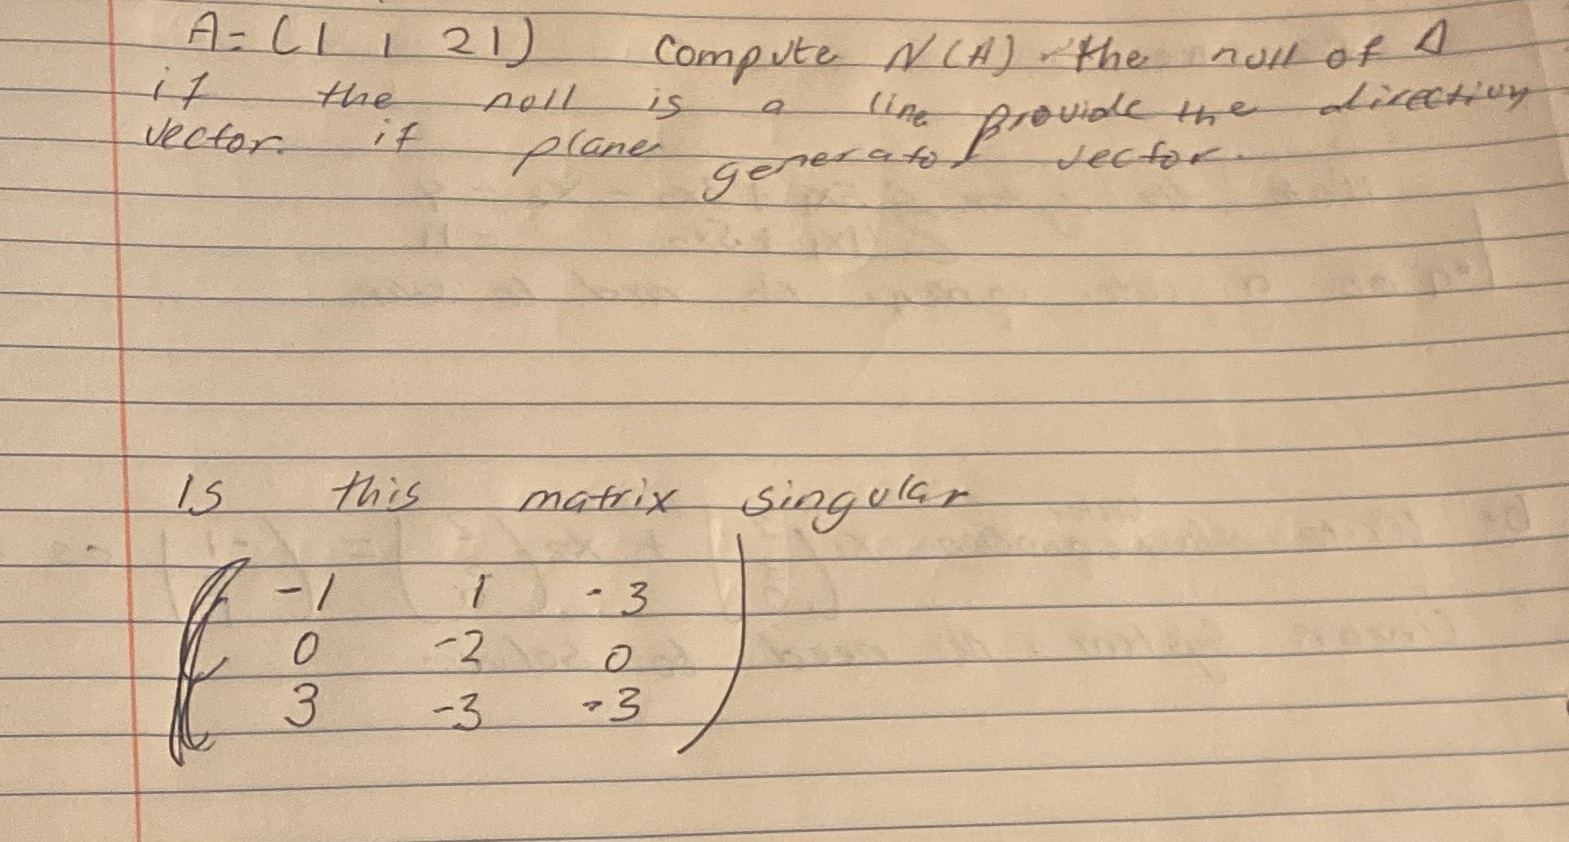 A=(1 1 21) Compute N(A) the null of A
if the null is a line provide the direction
vector. if plane generator vector.
Is this matrix singular
-1 1 -3
0 -2 0
3 -3 -3